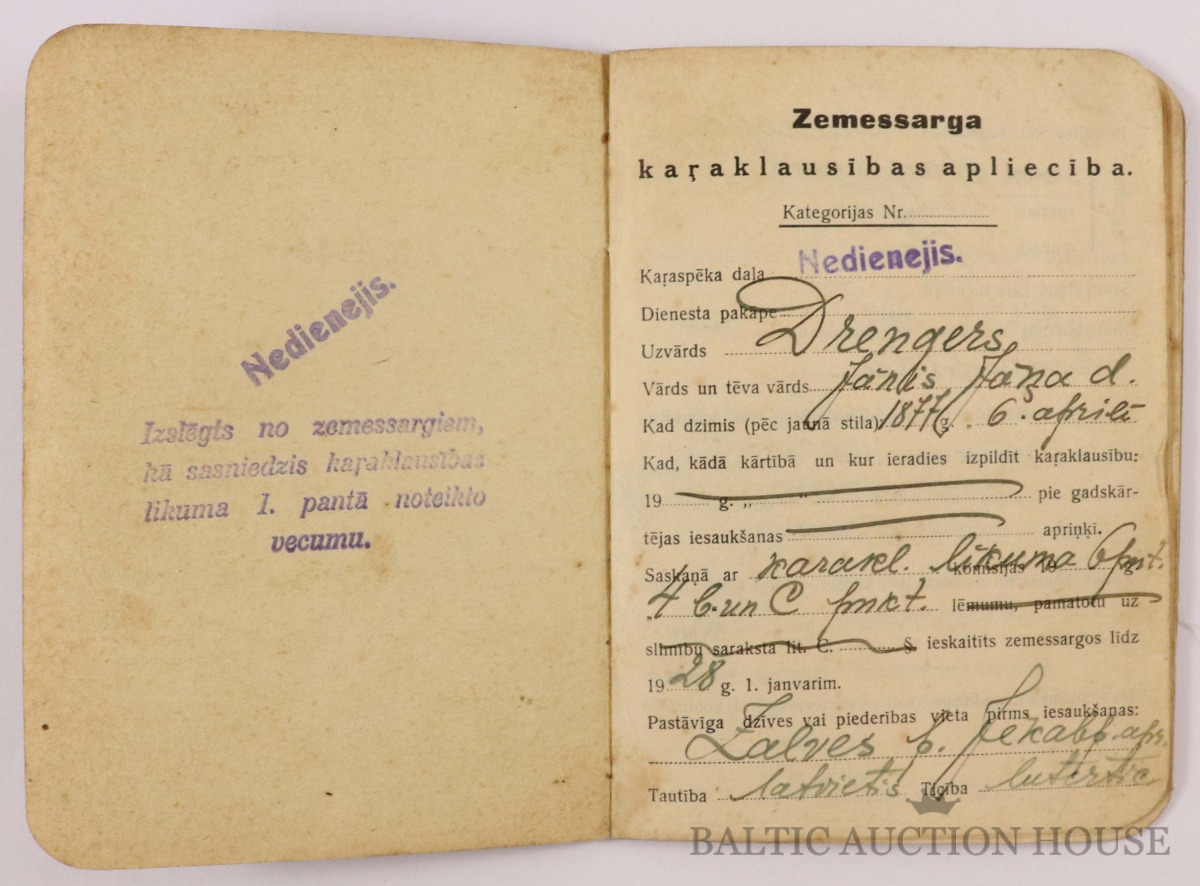 Nedienejis.
Izslēgts no zemessargiem,
kā sasniedzis kaŗaklausības
likuma 1. pantā noteikto
vecumu.
Zemessarga
kaŗaklausības apliecība.
Kategorijas Nr.
Kaŗaspēka daļa Nedienejis.
Dienesta pakāpe
Uzvārds Drengers
Vārds un tēva vārds Jānis Jāņa d.
Kad dzimis (pēc jaunā stila) 1877 g. 6. aprilī
Kad, kādā kārtībā un kur ieradies izpildīt kaŗaklausību:
19 g. „ “ pie gadskār-
tējas iesaukšanas apriņķī.
Saskaņā ar karakl. likuma 6 pnt. komisijas 19 g.
„ 4 b. un C pnkt. lēmumu, pamatotu uz
slimību saraksta lit. C. § ieskaitīts zemessargos līdz
1928 g. 1. janvarim.
Pastāvīga dzīves vai piederības vieta pirms iesaukšanas:
Zalves p. Jekabp. apr.
Tautība latvietis Ticība lutertic
BALTIC AUCTION HOUSE